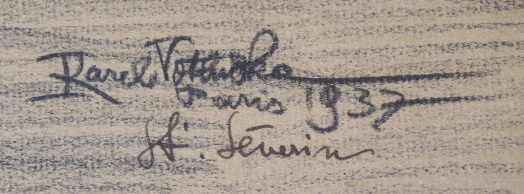 Karel Votlučka
Paris 1937
St. Séverin